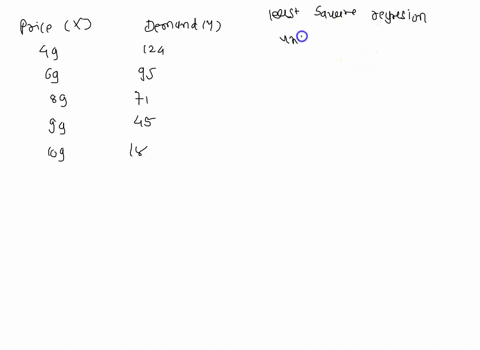 Price (X) Demand (Y)
49 124
69 95
89 71
99 45
109 18
least Square regresion